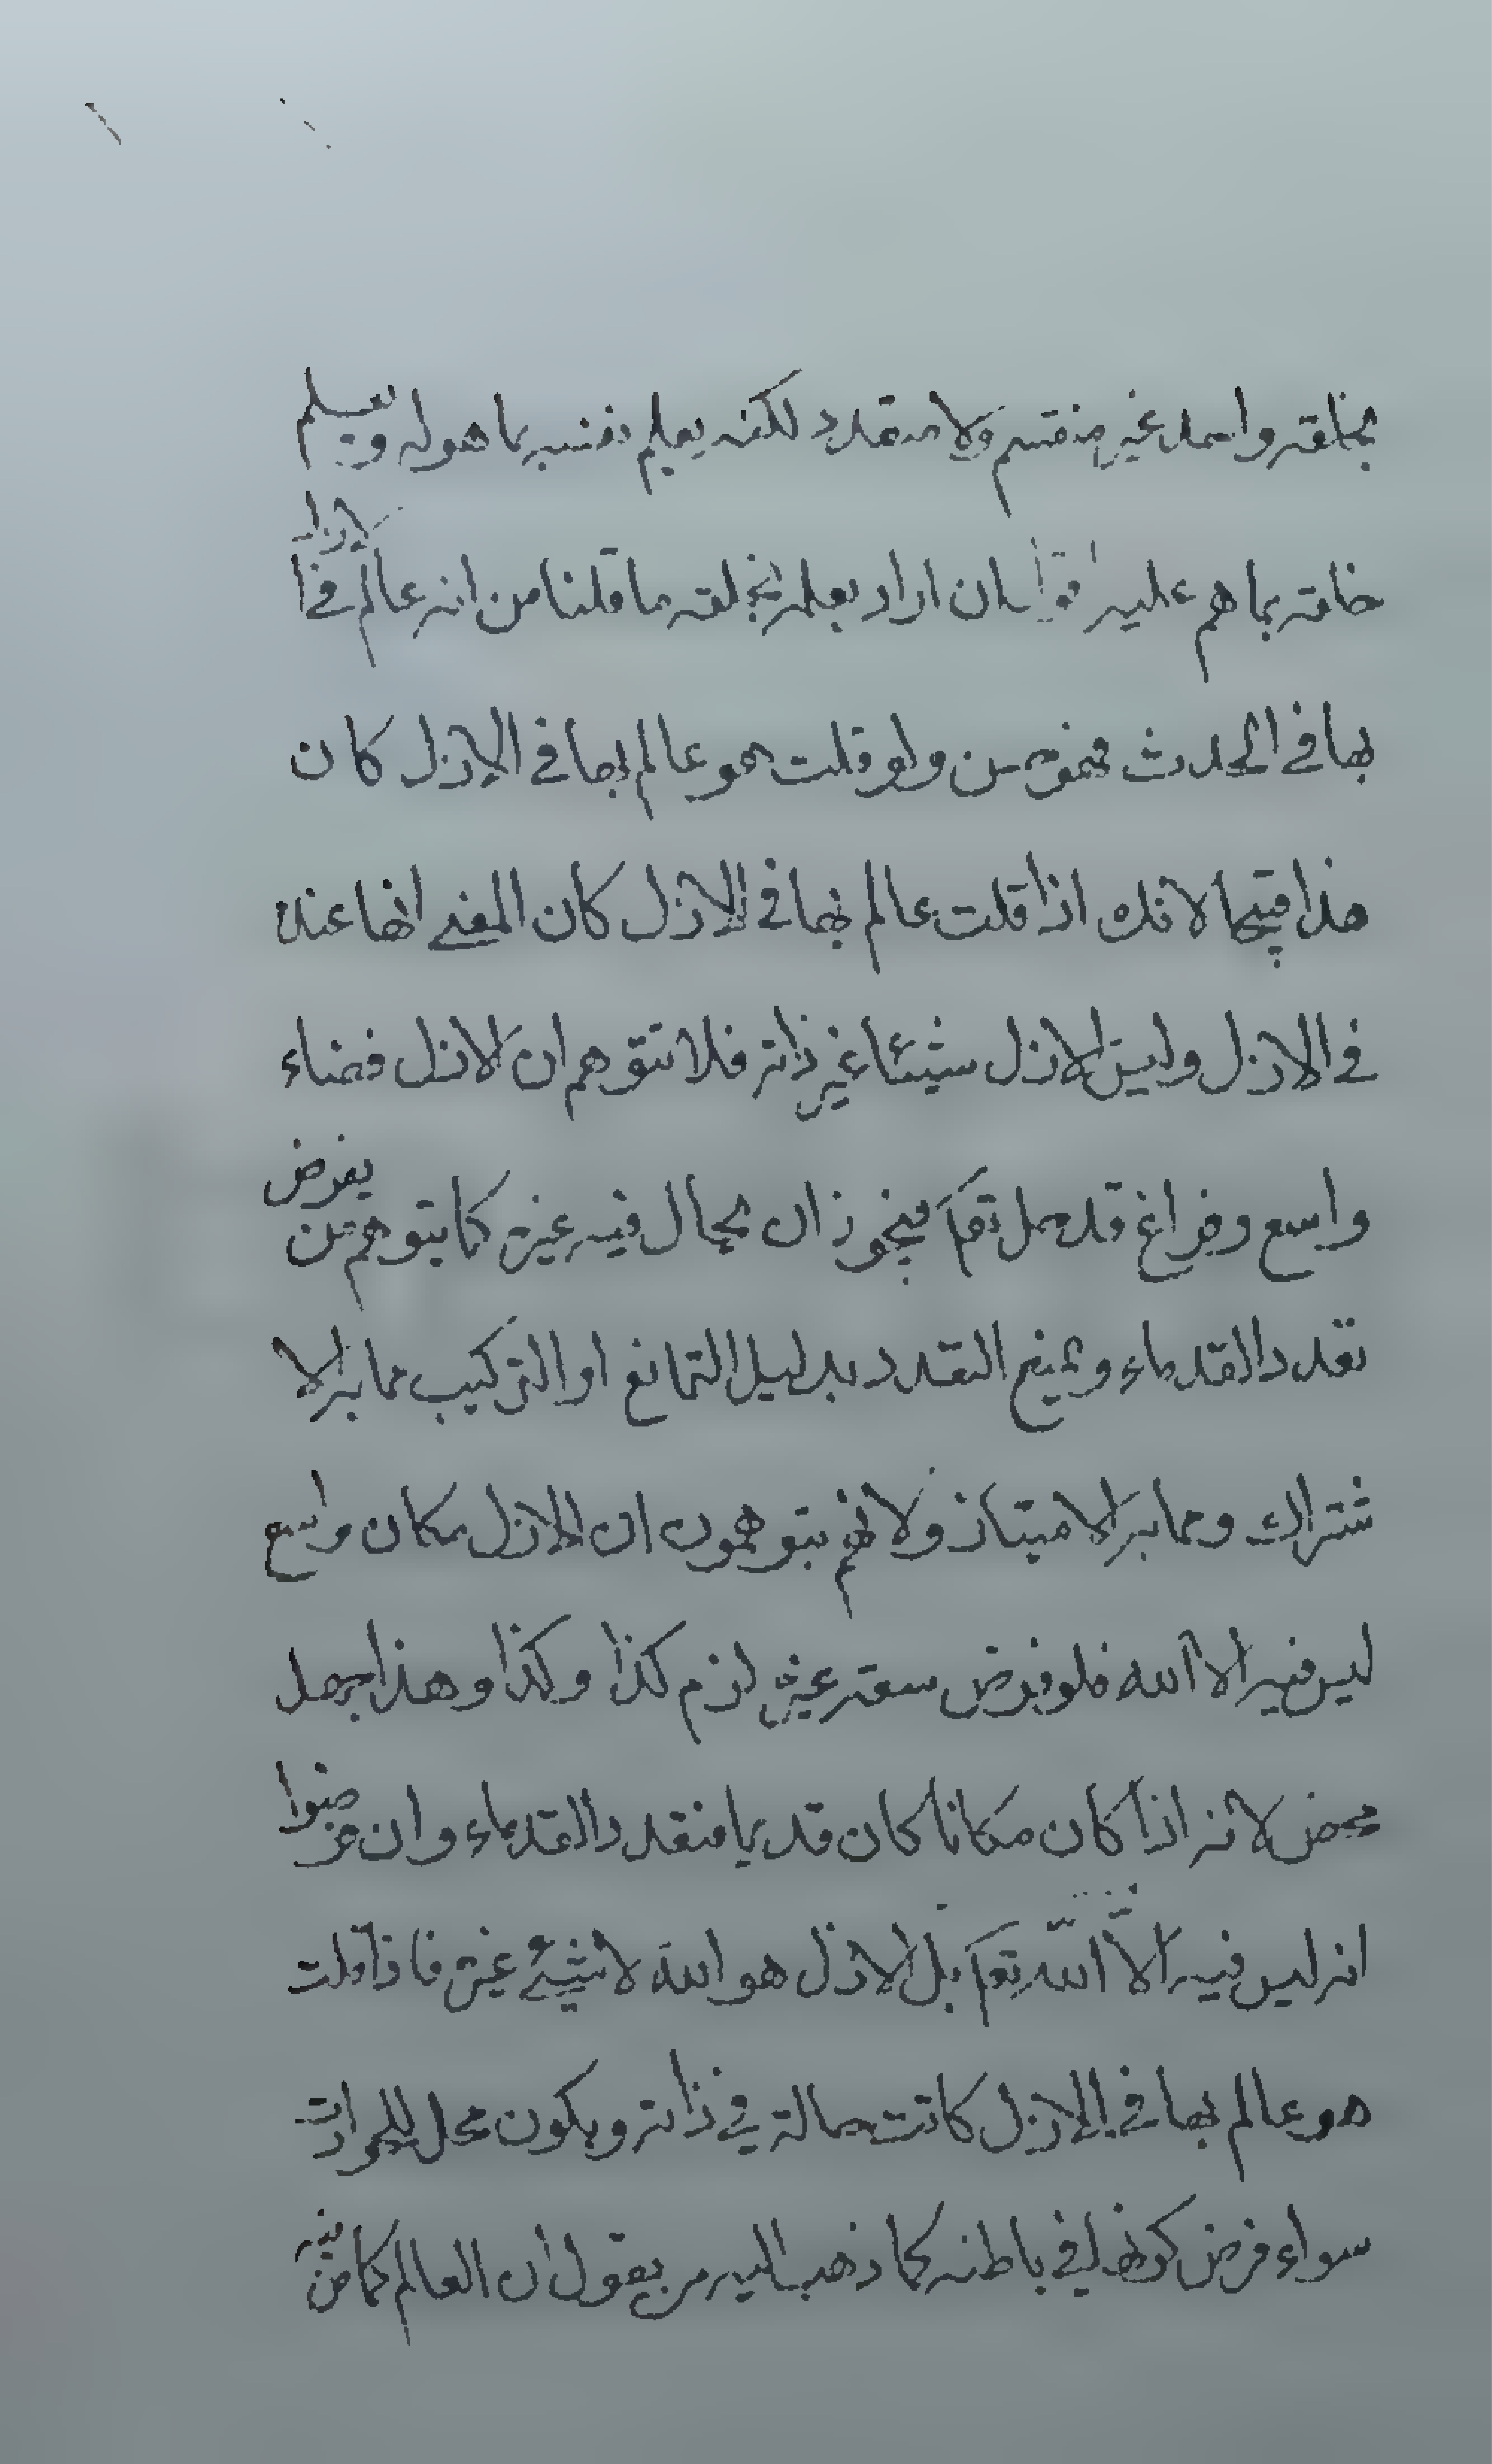 بخلقه واحد غير منقسم ولا متعدد لكنه يعلم نفسه بما هو له ويعلم
خلقه بما هم عليه اقول ان اراد بعلمه بخلقه ما قلنا من انه عالم في الازل
بها في الحدث فهو حسن ولو قلت هو عالم بها في الازل كان
هذا قبيحا لانك اذا قلت عالم بها في الازل كان المعنى انها عنده
في الازل وليس الازل شيئا غير ذاته فلا تتوهم ان الازل فضاء
واسع وفراغ قد حل تع فيجوز ان يحال فيه غيره كما يتوهم من يفرض
تعدد القدماء ويمنع التعدد بدليل التمانع او التركيب مما به الا
شتراك ومما به الامتياز ولانهم يتوهمون ان الازل مكان واسع
ليس فيه الا الله فلو فرض معه غيره لزم كذا وكذا وهذا جهل
محض لانه اذا كان مكانا كان قديما فتعدد القدماء وان فرضوا
انه ليس فيه الا الله تع بل الازل هو الله لا شيء غيره فاذا قلت
هو عالم بها في الازل كانت حالة في ذاته ويكون محل للحوادث
سواء فرض كونها في باطنه كما ذهب اليه من يقول ان العالم كامن فيه